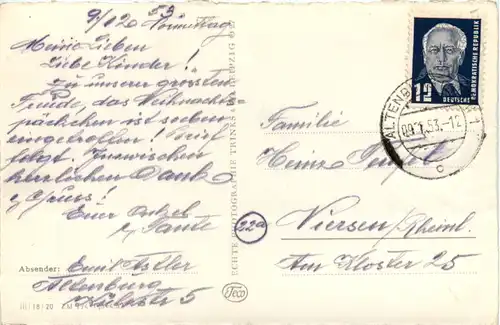 9/1 20 53 Vormittag
Meine Lieben
Liebe Kinder!
Zu unserer grössten
Freude, das Weihnachts-
päckchen ist soeben
eingetroffen! Brief
folgt. Inzwischen
herzlichen Dank
u. Gruss!
Euer Onkel
u. Tante
Absender: Emil
Altenburg
5
III/18/20
ECHTE PHOTOGRAPHIE TRINKS LEIPZIG
Teco
22a
12
DEUTSCHE
DEMOKRATISCHE REPUBLIK
ALTENBURG
09.1.53.-12
c
Familie
Heinz
Viersen/Rheinl.
Am Kloster 25